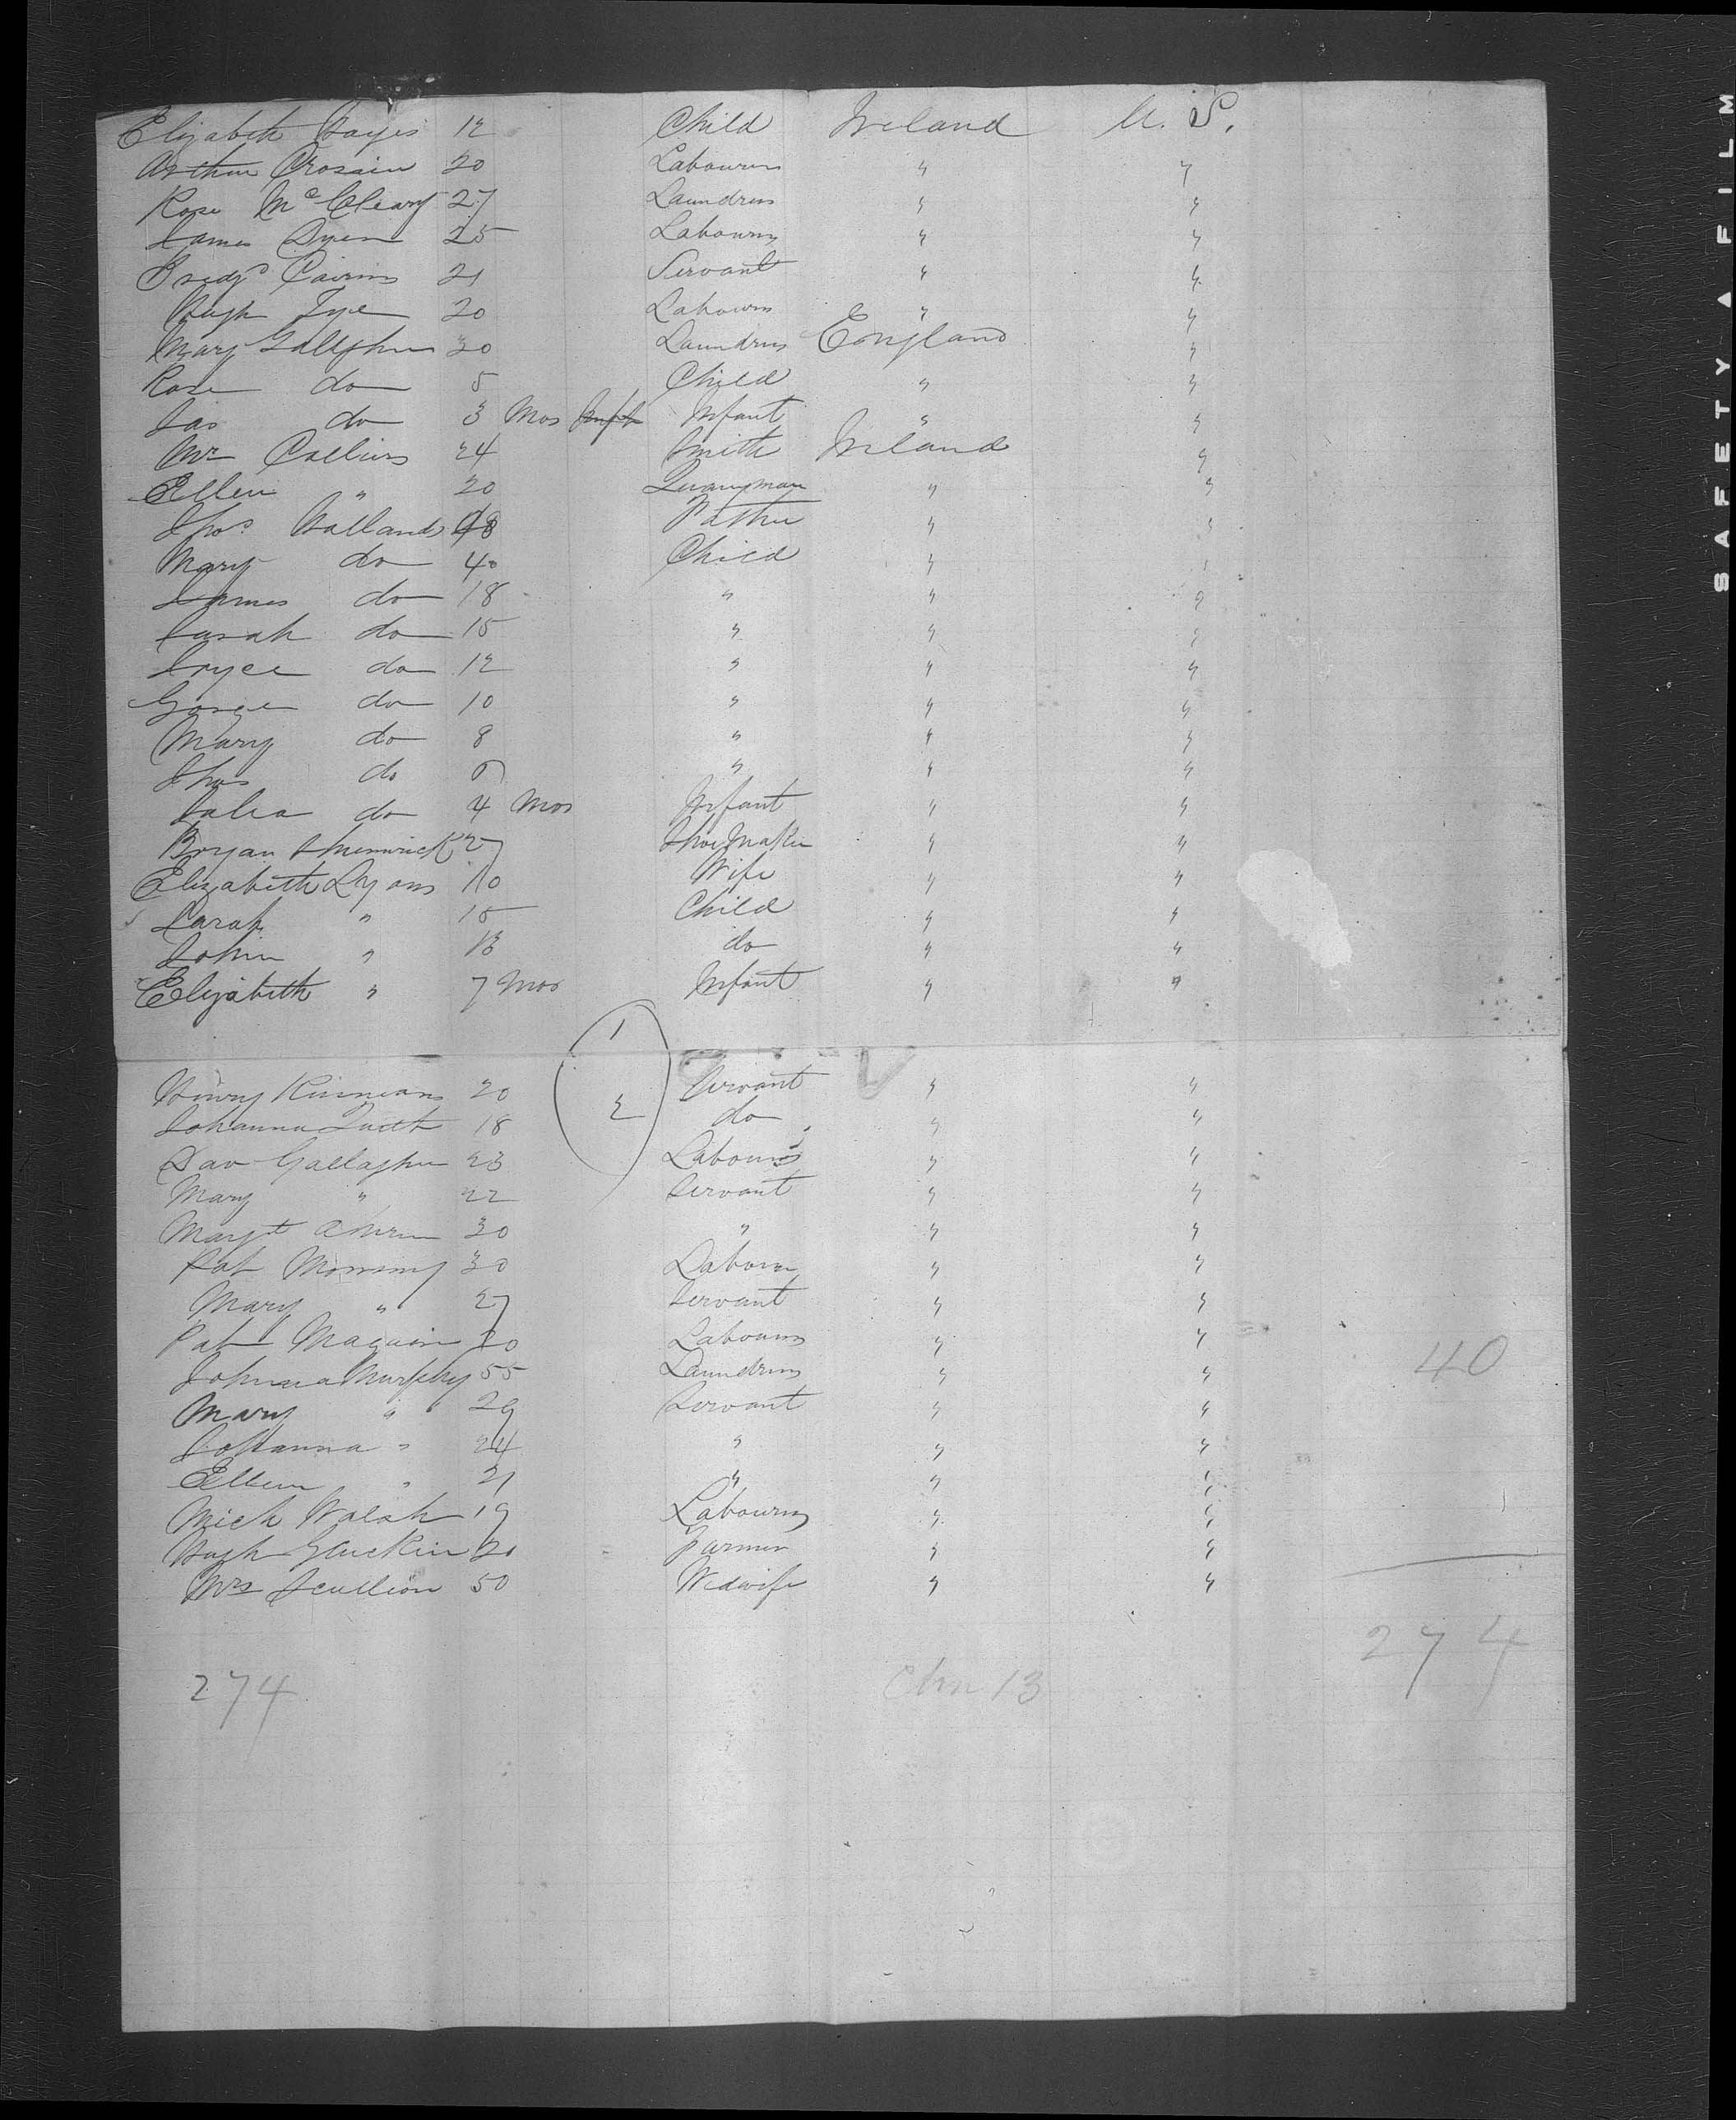 Elizabeth Hayes 12 Child Ireland U. S.
Arthur Crosain 20 Labourer " "
Rose McCleary 27 Laundress " "
James Dyer 25 Labourer " "
Bridgt Cairns 21 Servant " "
Hugh Tye 20 Labourer " "
Mary Gallagher 30 Laundress England "
Rose do 5 Child " "
Jas do 3 Mos Infant " "
Wm Collins 24 Smith Ireland "
Ellen " 20 Quarryman " "
Thos Holland 48 Father " "
Mary do 40 Child " "
James do 18 " " "
Sarah do 15 " " "
Joyce do 12 " " "
George do 10 " " "
Mary do 8 " " "
Thos do 6 " " "
Julia do 4 Mos Infant " "
Bryan 27 ShoeMaker " "
Elizabeth Lyons 40 Wife " "
Sarah " 15 Child " "
John " 13 do " "
Elizabeth " 7 Mos Infant " "
1
Kinneans 20 Servant " "
2
Johanna 18 do " "
Dav Gallagher 23 Labourer " "
Mary " 22 Servant " "
Margt Ahern 30 " " "
Pat 30 Labourer " "
Mary " 27 Servant " "
Pat Maguire 20 Labourer " "
Johanna Murphy 55 Laundress " "
Mary " 29 Servant " "
Johanna " 24 " " "
Ellen " 21 " " "
Mich Walsh 19 Labourer " "
Hugh Gluckin 20 Farmer " "
Mrs Scullion 50 Midwife " "
40
274
274 Chn 13
SAFETY A FILM